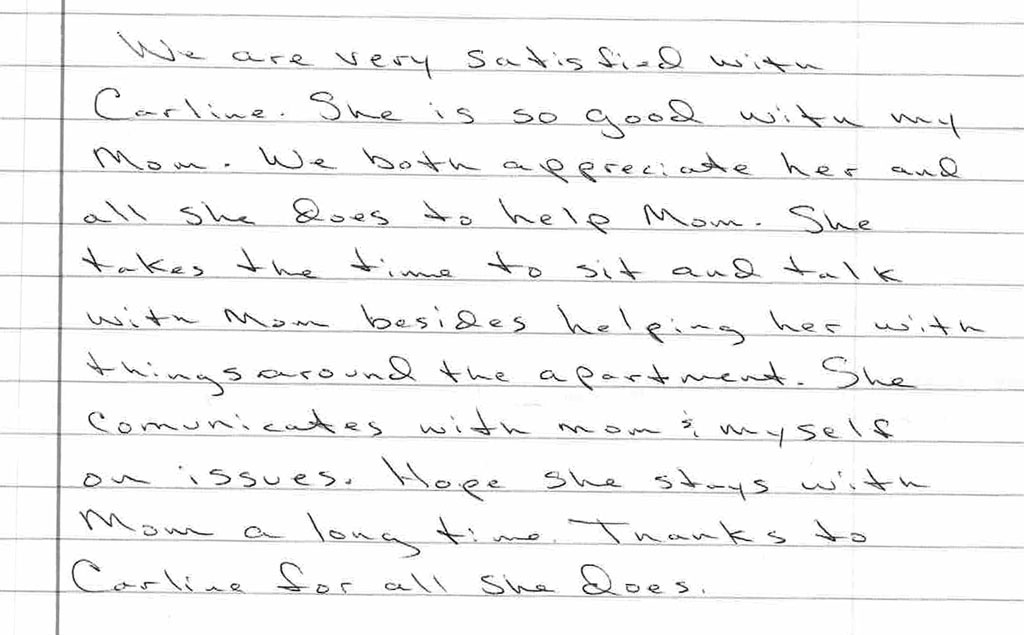 We are very satisfied with
Carline. She is so good with my
Mom. We both appreciate her and
all she does to help Mom. She
takes the time to sit and talk
with Mom besides helping her with
things around the apartment. She
comunicates with mom & myself
on issues. Hope she stays with
Mom a long time. Thanks to
Carline for all she does.